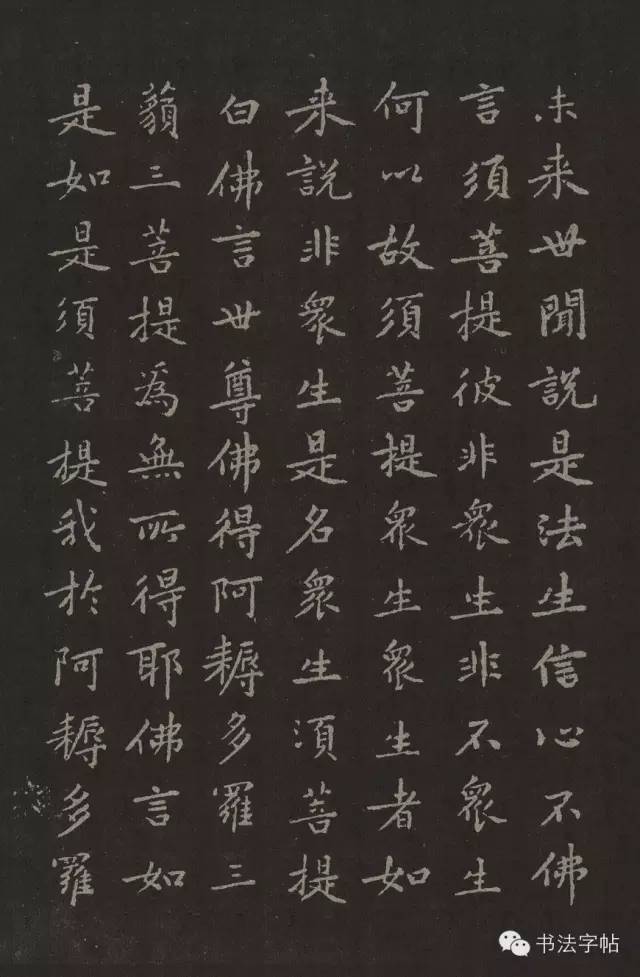 未来世聞說是法生信心不佛
言須菩提彼非衆生非不衆生
何以故須菩提衆生衆生者如
来說非衆生是名衆生須菩提
白佛言世尊佛得阿耨多羅三
藐三菩提為無所得耶佛言如
是如是須菩提我於阿耨多羅
书法字帖